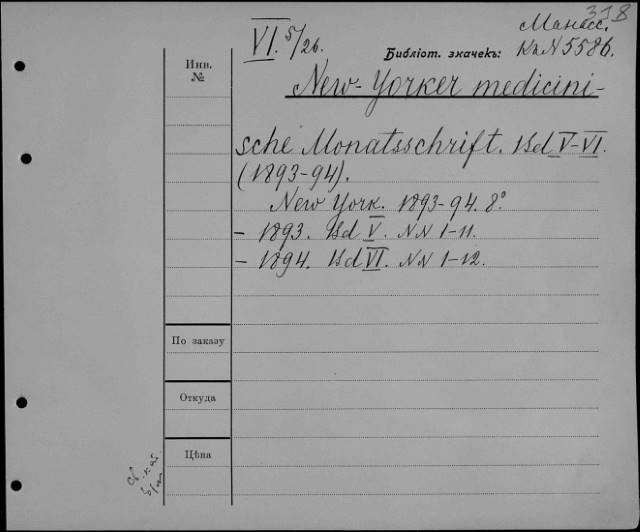 318
VI. 5/26.
Манасс.
Библіот. значекъ: Кк N 5586.
Инв.
№
New-Yorker medicini-
sche Monatsschrift. Bd V-VI.
(1893-94).
New York. 1893-94. 8°
- 1893. Bd V. NN 1-11.
- 1894. Bd VI. NN 1-12.
По заказу
Откуда
Цѣна